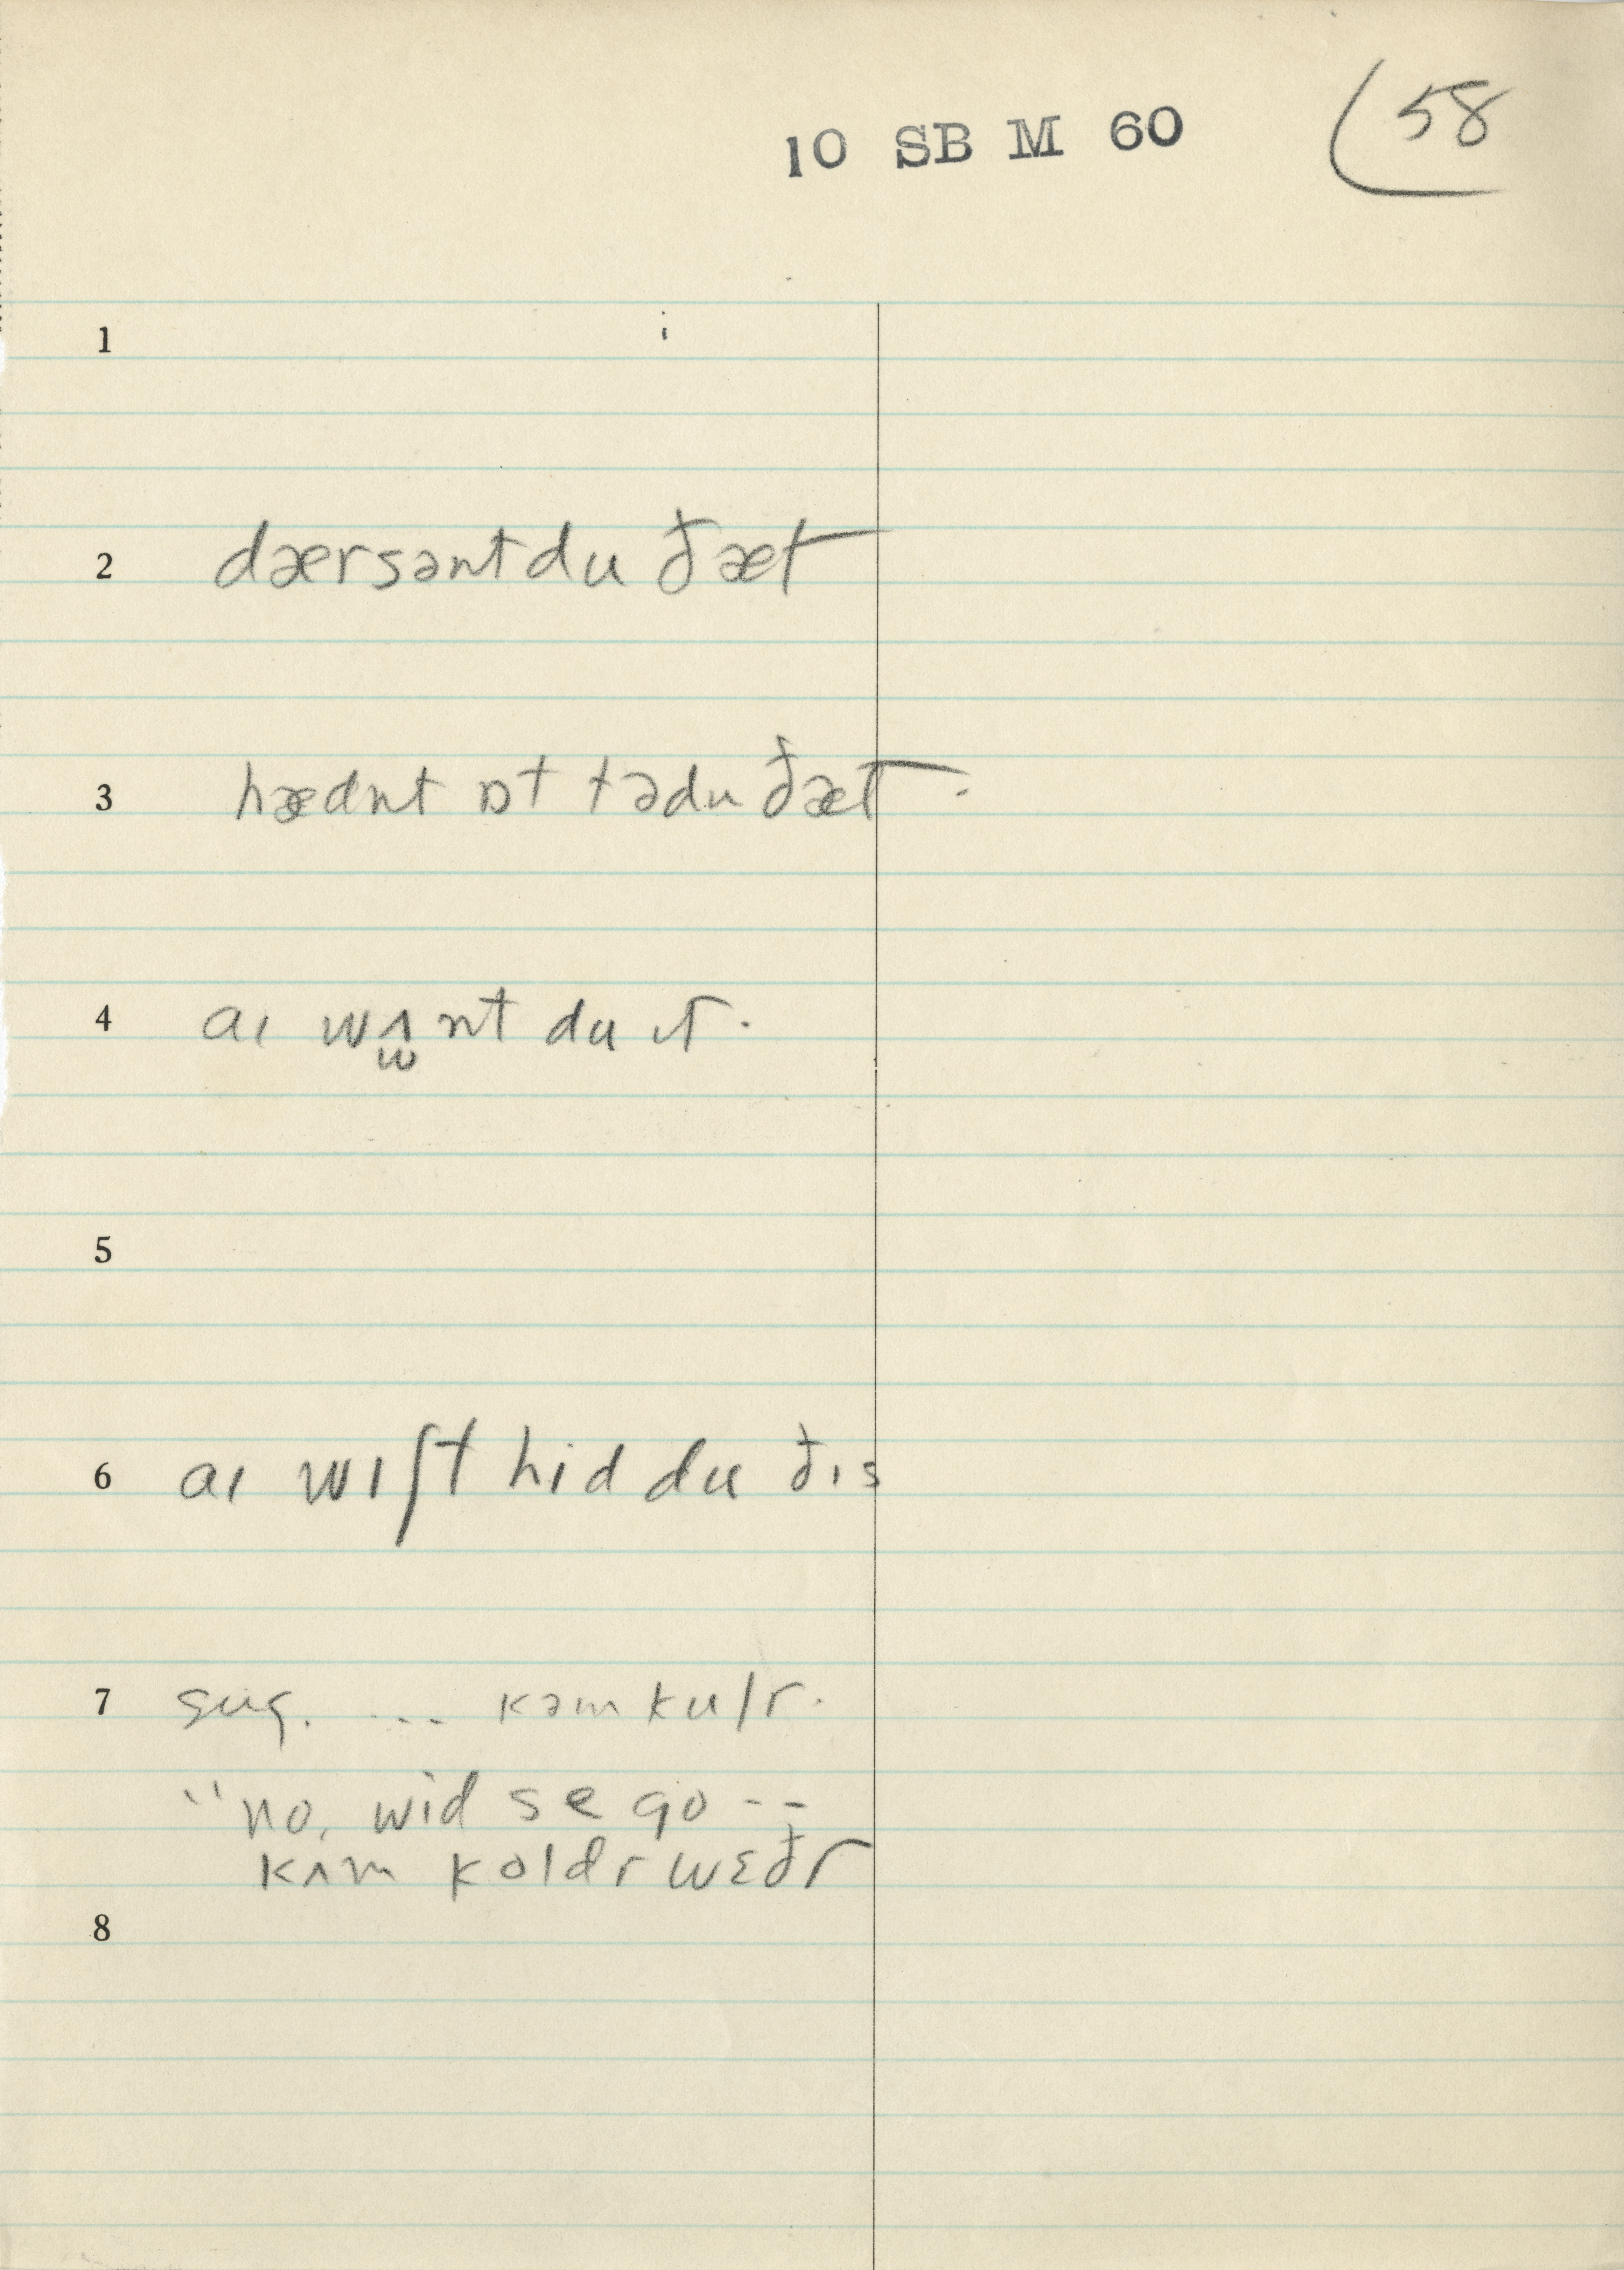 10 SB M 60 58
1
2 dærsənt du ðæt
3 hædnt ɒt tədu ðæt.
4 aɪ wʌ̫nt du ɪt.
5
6 aɪ wɪʃt hid du ðɪs
7 sug. ... kəm kulr.
"no, wid se go --
kʌm koldr wɛðr
8